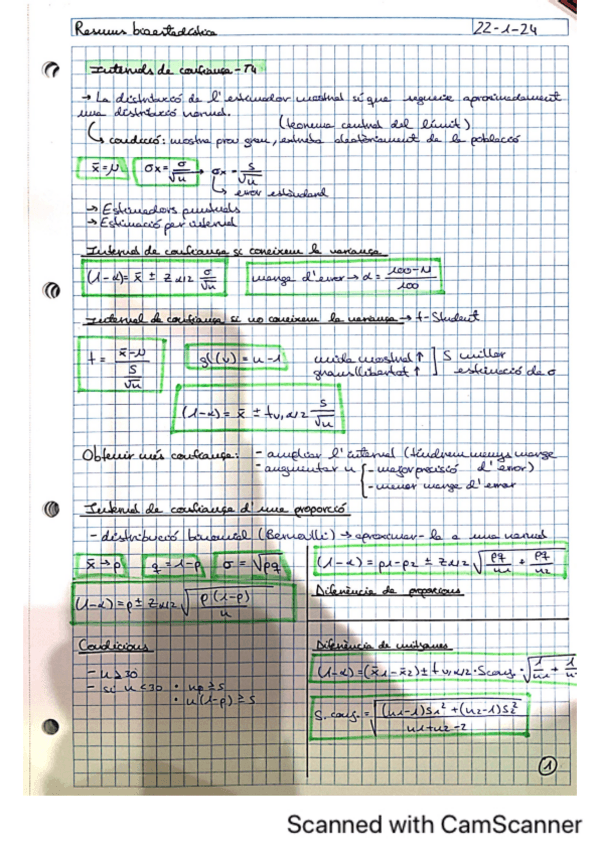 Resums bioestadística 22-1-24
Intervals de confiança - T4
→ La distribució de l'estimador mostral sí que segueix aproximadament
una distribució normal.
(teorema central del límit)
↳ condició: mostra prou gran, extreta aleatòriament de la població
x̄ = μ σx = σ/√n → σx = s/√n
↳ error estàndard
→ Estimadors puntuals
→ Estimació per interval
Interval de confiança si coneixem la variança
(1-α) = x̄ ± Z α/2 σ/√n marge d'error → α = (100-N)/100
Interval de confiança si no coneixem la variança → t-Student
t = (x̄-μ)/(s/√n) gl(ν) = n-1 mida mostral ↑ ] S millor
graus llibertat ↑ ] estimació de σ
(1-α) = x̄ ± tν, α/2 s/√n
Obtenir més confiança: - ampliar l'interval (tindrem menys marge
- augmentar n { - major precisió d'error)
- menor marge d'error
Interval de confiança d'una proporció
- distribució binomial (Bernoulli) → aproximar-la a una normal
x̄ → p q = 1-p σ = √pq (1-α) = p1-p2 ± Zα/2 √(pq/n1 + pq/n2)
(1-α) = p ± Zα/2 √(p(1-p)/n) Diferència de proporcions
Condicions Diferència de mitjanes
- n ≥ 30 (1-α) = (x̄1-x̄2) ± tν, α/2 · Sconj · √(1/n1 + 1/n
- si n < 30 • np ≥ 5
• n(1-p) ≥ 5
S. conj. = √(((n1-1)S1² + (n2-1)S2²)/(n1+n2-2))
1
Scanned with CamScanner